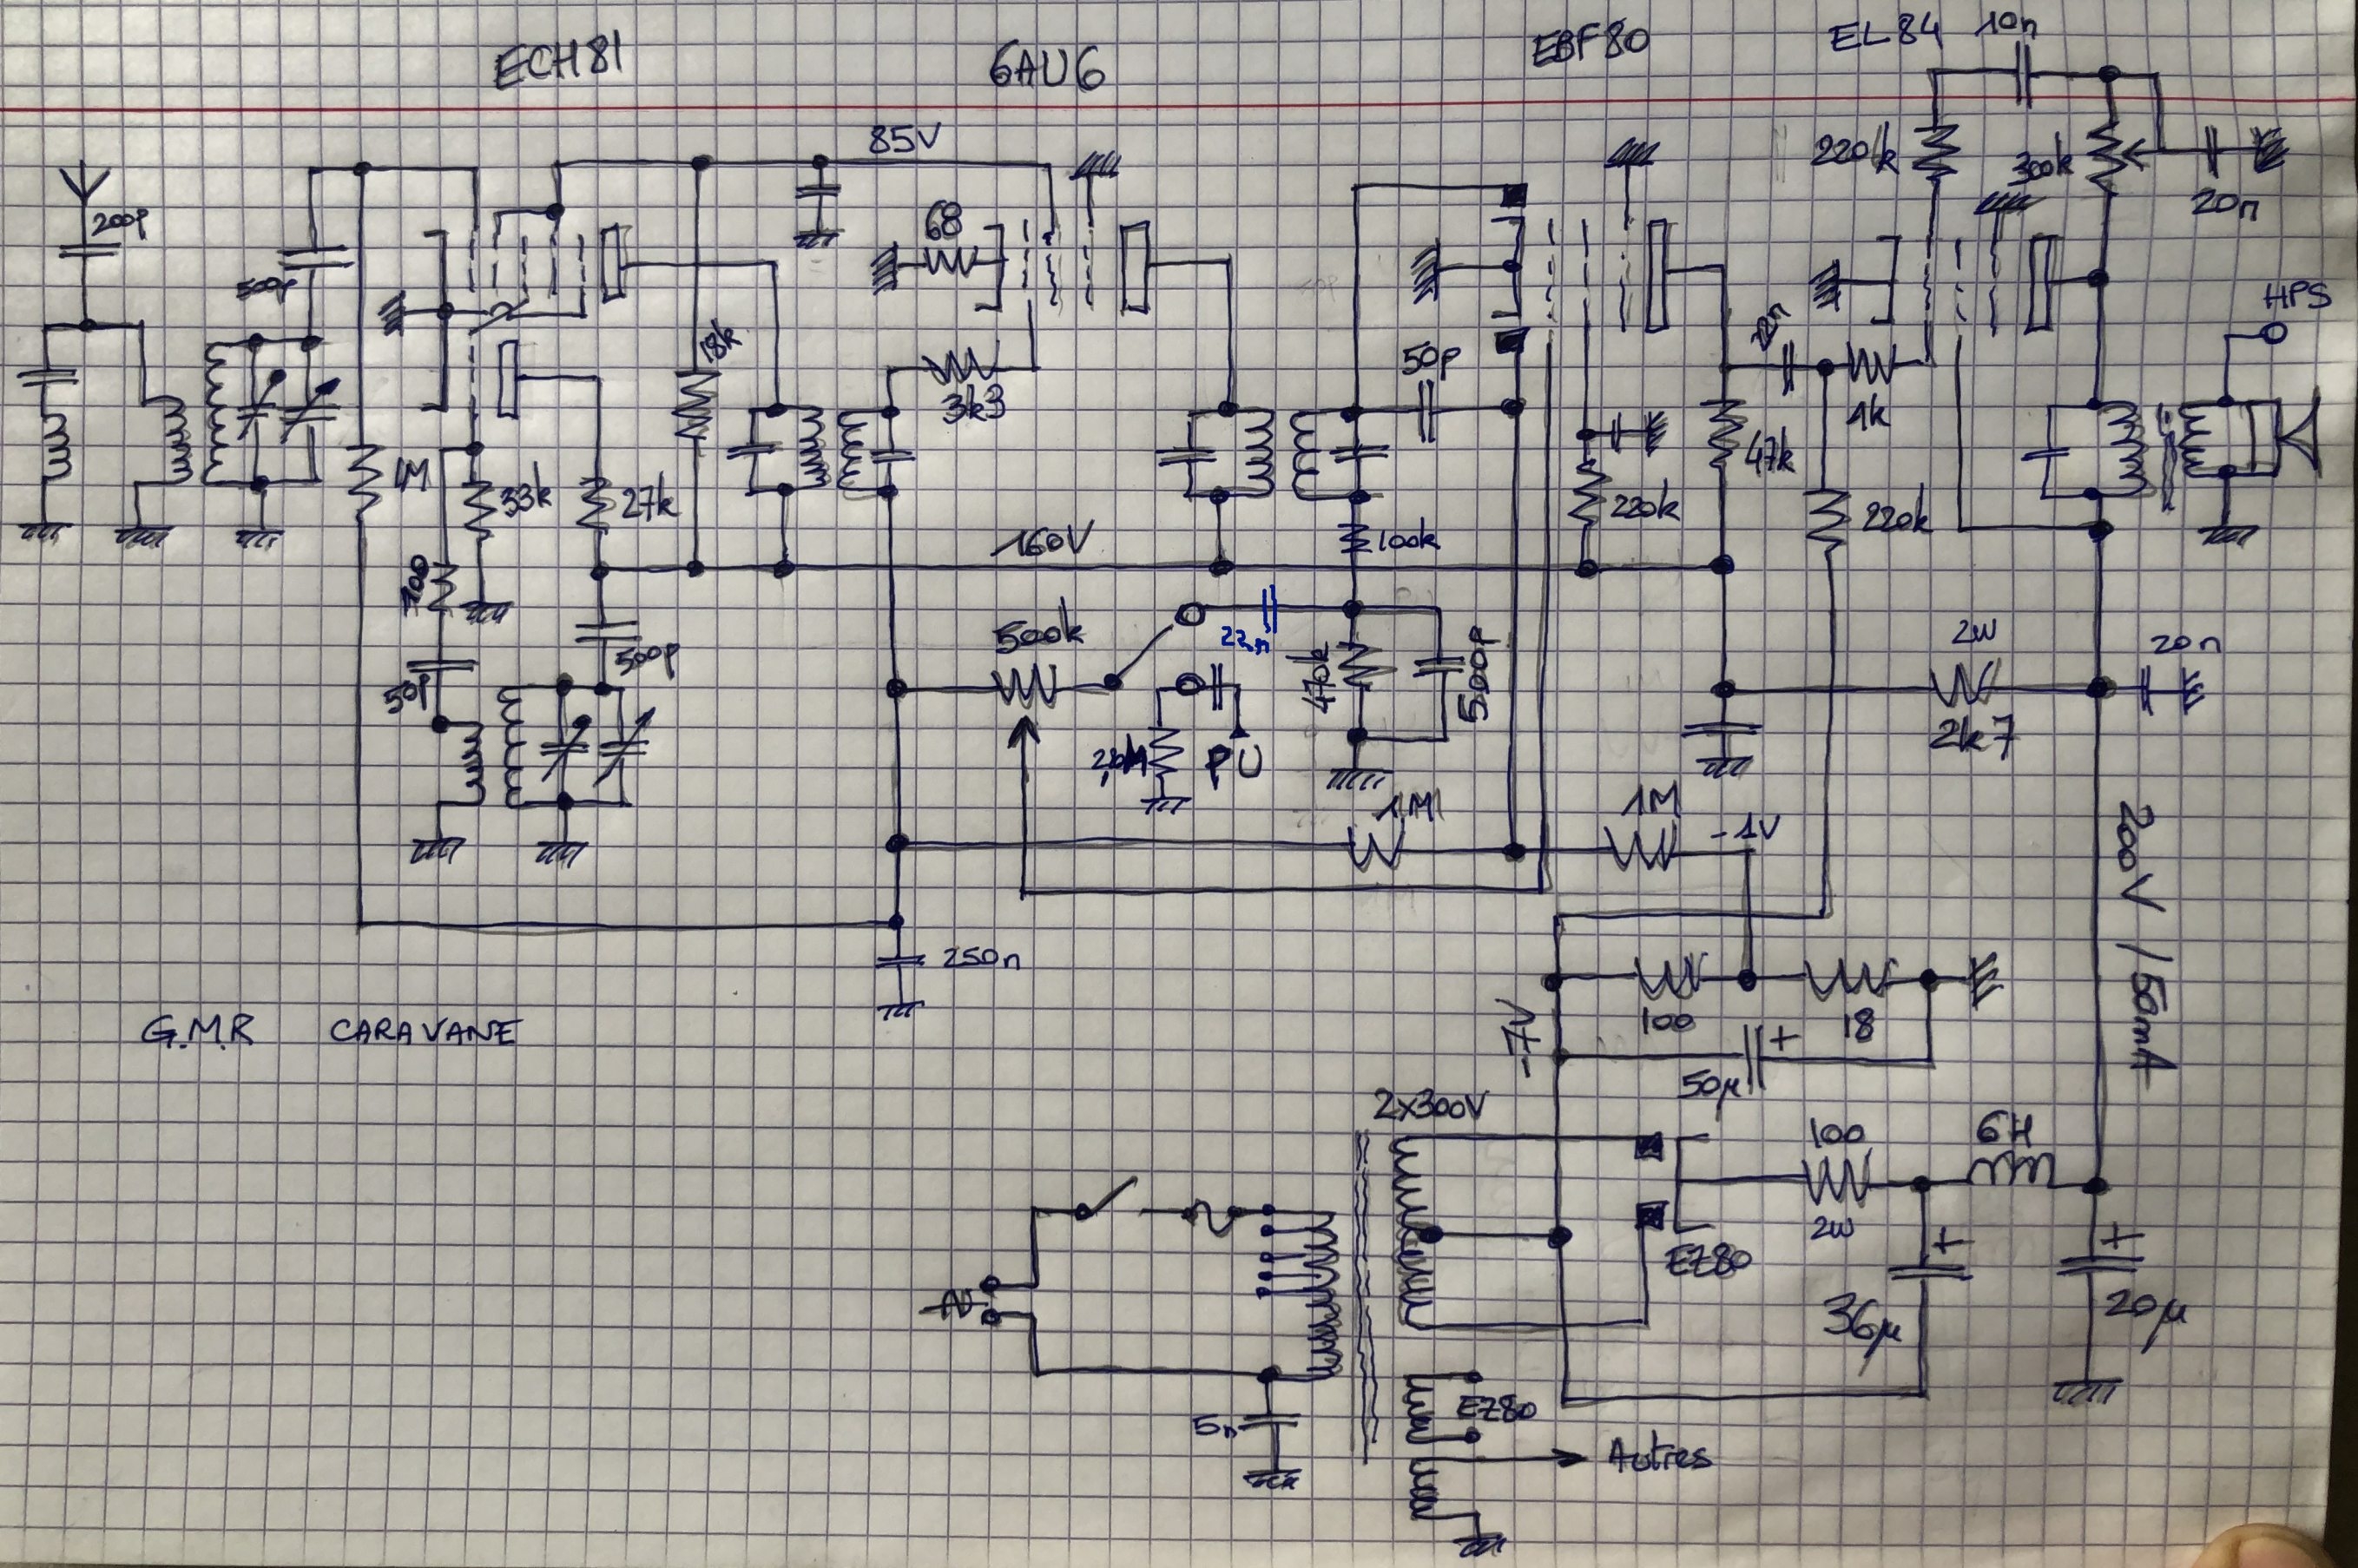 ECH81
6AU6
EBF80
EL84
10n
85V
200p
220k
300k
20n
68
500p
HPS
22n
18k
50p
3k3
1k
1M
33k
27k
47k
220k
220k
160V
100k
100
500p
500k
22n
470k
500p
2W
20n
50p
PU
2k7
1M
1M
-1V
200V / 50mA
250n
G.M.R CARAVANE
100
18
-7V
50µ
+
2x300V
100
6H
2W
EZ80
+
+
36µ
20µ
5n
EZ80
Autres